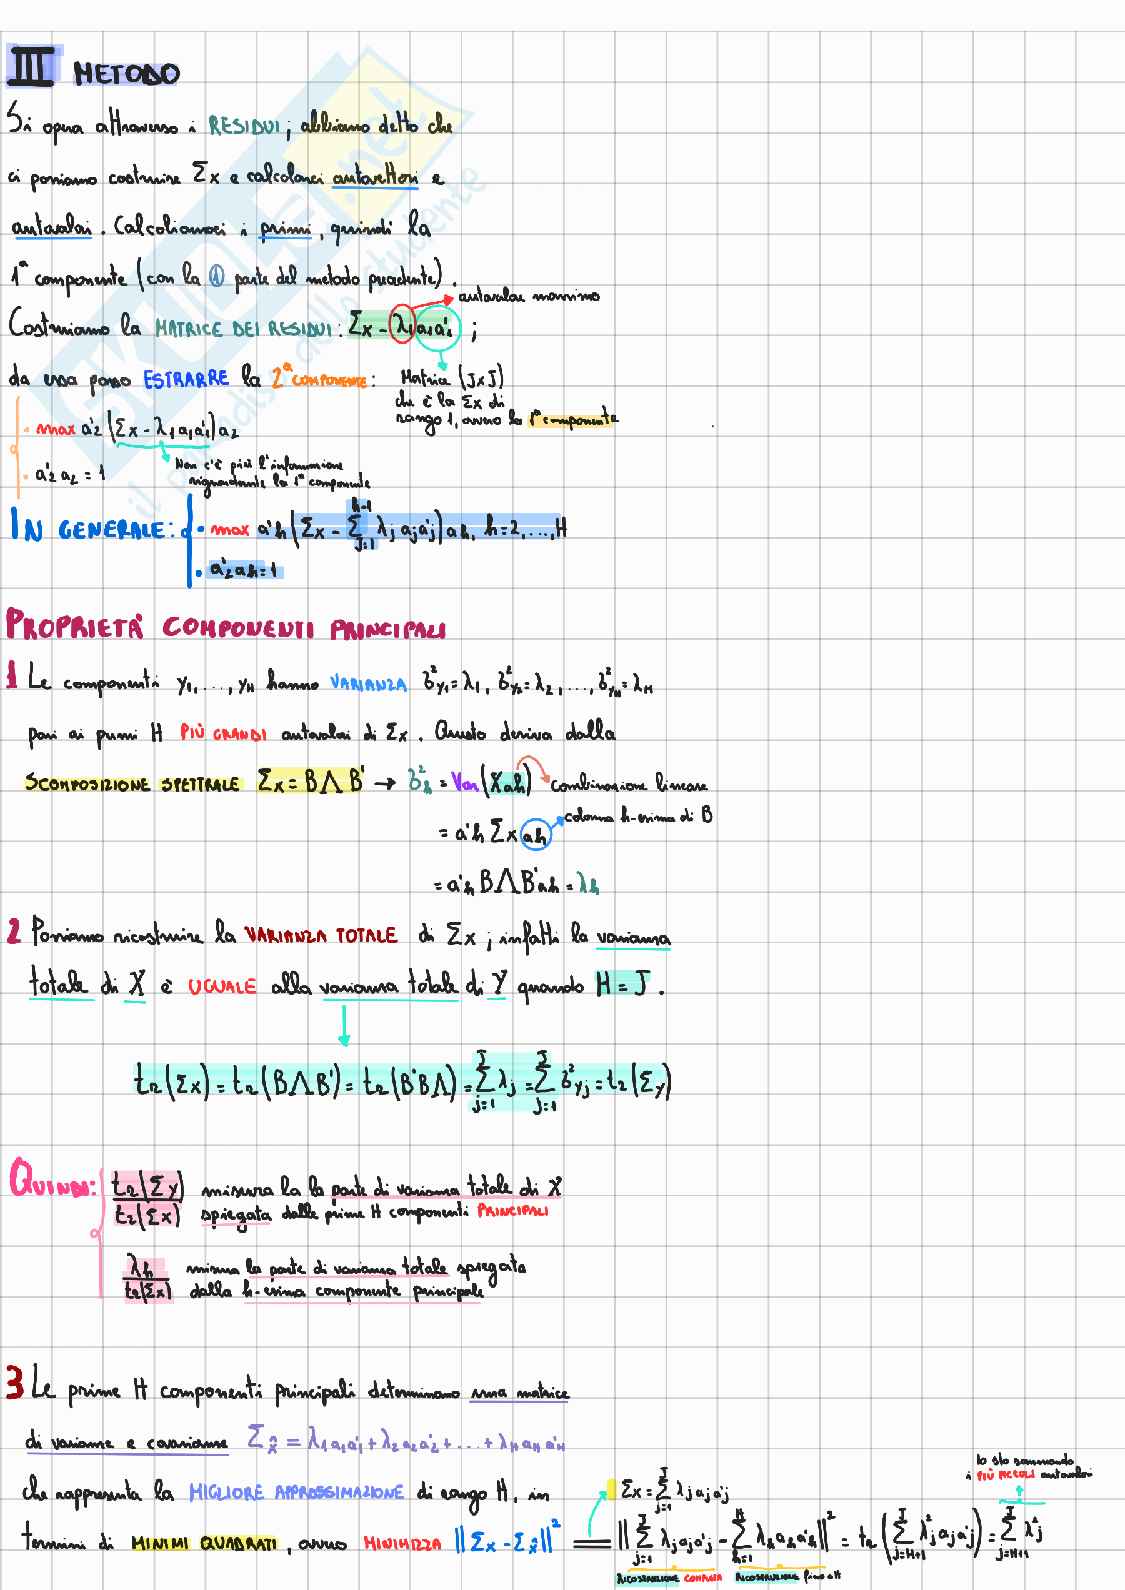 III METODO
Si opera attraverso i RESIDUI; abbiamo detto che
ci possiamo costruire Σx e calcolarci autovettori e
autovalori. Calcoliamoci i primi, quindi la
1ª componente (con la ① parte del metodo precedente).
autovalore massimo
Costruiamo la MATRICE DEI RESIDUI: Σx - λ₁a₁a'₁ ;
da essa posso ESTRARRE la 2ª COMPONENTE:
Matrice (J×J)
che è la Σx di
rango 1, ovvero la 1ª componente
· max a'₂(Σx - λ₁a₁a'₁)a₂
· a'₂a₂ = 1
Non c'è più l'informazione
riguardante la 1ª componente
IN GENERALE: · max a'h(Σx - Σ_{j=1}^{h-1} λj aja'j)ah, h=2,...,H
· a'₂ah=1
PROPRIETÀ COMPONENTI PRINCIPALI
1 Le componenti y₁,...,yH hanno VARIANZA δ²y₁=λ₁, δ²y₂=λ₂,...,δ²yH=λH
pari ai primi H PIÙ GRANDI autovalori di Σx. Questo deriva dalla
SCOMPOSIZIONE SPETTRALE Σx = BΛB' → δ²h = Var(Xah) combinazione lineare
= a'h Σx ah colonna h-esima di B
= a'h BΛB'ah = λh
2 Possiamo ricostruire la VARIANZA TOTALE di Σx; infatti la varianza
totale di X è UGUALE alla varianza totale di Y quando H = J.
tr(Σx) = tr(BΛB') = tr(B'BΛ) = Σ_{j=1}^{J} λj = Σ_{j=1}^{J} δ²yj = tr(Σy)
QUINDI: tr(Σy)/tr(Σx) misura la la parte di varianza totale di X
spiegata dalle prime H componenti PRINCIPALI
λh/tr(Σx) misura la parte di varianza totale spiegata
dalla h-esima componente principale
3 Le prime H componenti principali determinano una matrice
di varianze e covarianze Σx̂ = λ₁a₁a'₁+λ₂a₂a'₂+...+λHaHa'H
che rappresenta la MIGLIORE APPROSSIMAZIONE di rango H, in
termini di MINIMI QUADRATI, ovvero MINIMIZZA ||Σx - Σx̂||²
Σx = Σ_{j=1}^{J} λjaja'j
Io sto sommando
i PIÙ PICCOLI autovalori
= ||Σ_{j=1}^{J} λjaja'j - Σ_{h=1}^{H} λhaha'h||² = tr(Σ_{j=H+1}^{J} λ²jaja'j) = Σ_{j=H+1}^{J} λ²j
RICOSTRUZIONE COMPLETA RICOSTRUZIONE fino a H
SKUOLA.net
il paradiso dello studente